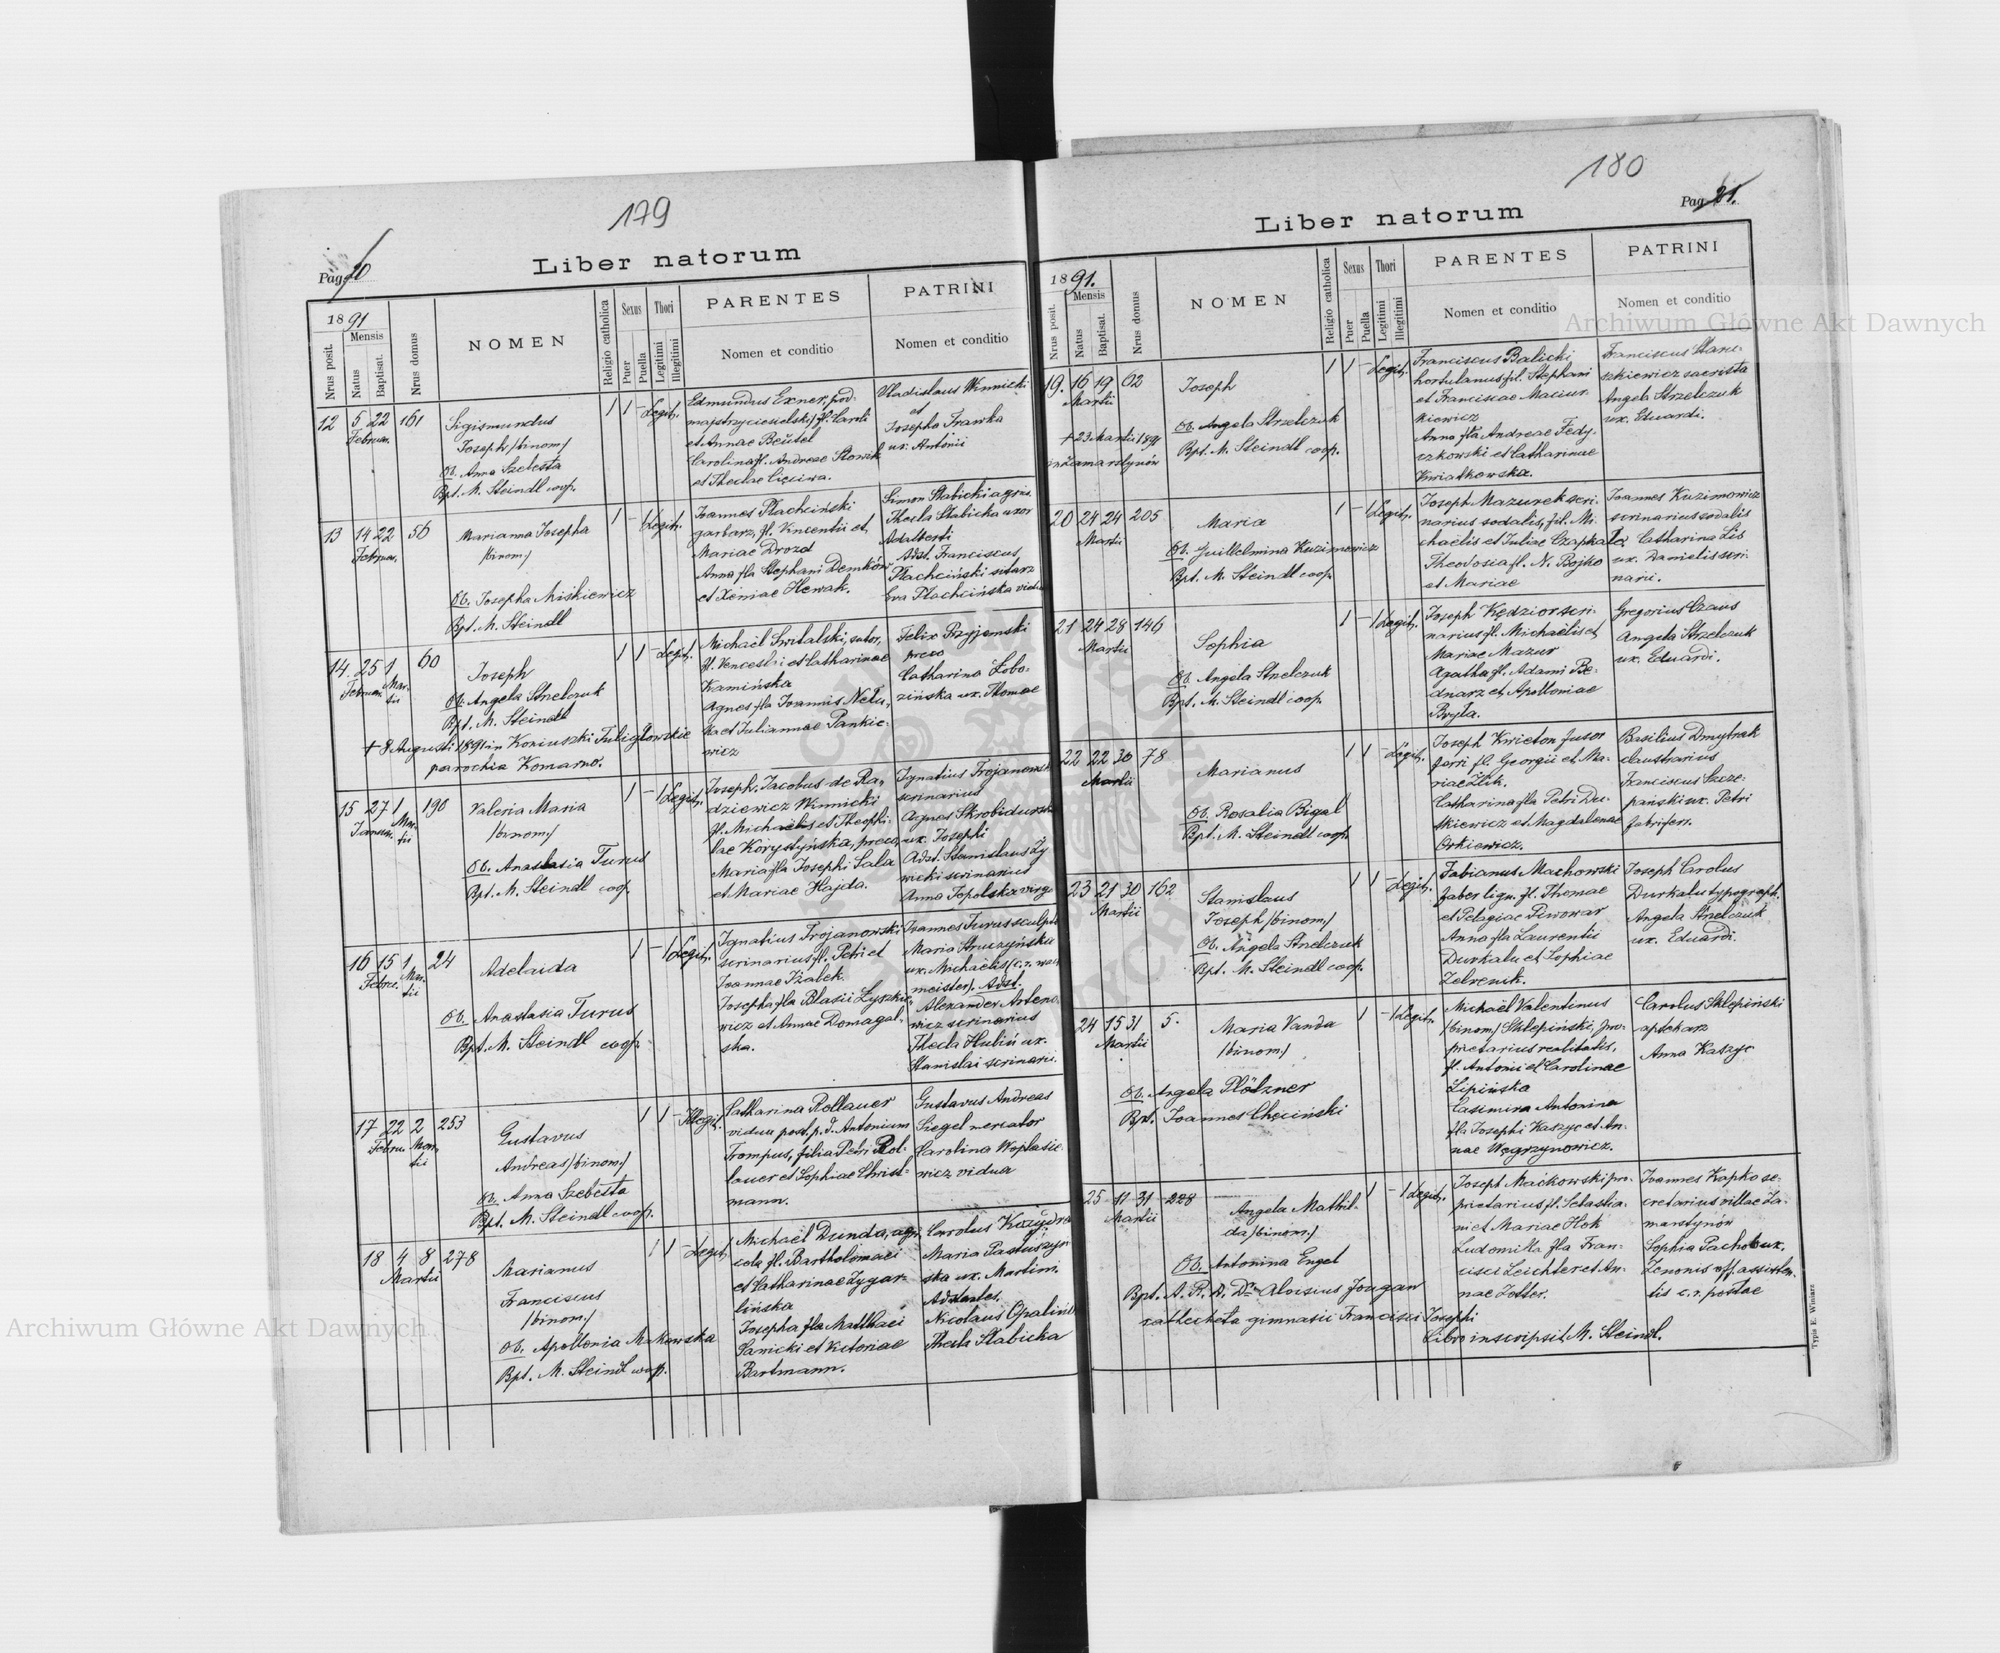 179
Pag. 20
Liber natorum
1891
Mensis
Nrus posit.
Natus
Baptisat.
Nrus domus
NOMEN
Religio catholica
Sexus
Puer
Puella
Thori
Legitimi
Illegitimi
PARENTES
Nomen et conditio
PATRINI
Nomen et conditio
12 5 22 161
Februar.
Sigismundus
Joseph /binom/
Ob. Anna Szebesta
Bpt. M. Steindl coop.
1 1 - Legit.
Edmundus Exner, pod-
majstrzy ciesielski, fl. Caroli
et Annae Beütel
Carolina fl. Andreae Słowik
et Theclae Cięciwa.
Vladislaus Winnicki
et
Josepha Trawka
ux. Antonii
13 14 22 56
Februar.
Marianna Josepha
/binom/
Ob. Josepha Miskiewicz
Bpt. M. Steindl
1 - 1 Legit.
Joannes Płachciński
garbarz, fl. Vincentii et
Mariae Drozd
Anna fla Stephani Demków
et Xeniae Hewak.
Simon Słabicki agric.
Thecla Słabicka uxor
Adalberti
Adst. Franciscus
Płachciński stolarz
Eva Płachcińska vidua
14 25 1 60
Februar. Mar-
tii
Joseph
Ob. Angela Strzelczuk
Bpt. M. Steindl
+ 8 Augusti 1891 in Koniuszki Tuligłowskie
parochia Komarno.
1 1 - Legit.
Michaël Switalski, sutor,
fl. Venceslai et Catharinae
Kamińska
Agnes fla Joannis Netu-
ka et Juliannae Pankie-
wicz
Felix Przyjemski
praeco
Catharina Łobo-
zińska ux. Thomae
15 27 1 190
Januar. Mar-
tii
Valeria Maria
/binom/
Ob. Anastasia Turus
Bpt. M. Steindl coop.
1 - 1 Legit.
Joseph. Jacobus de Ra-
dziewicz Winnicki
fl. Michaëlis et Theophi-
lae Korystyńska, praeco,
Maria fla Josephi Sala
et Mariae Hajda.
Ignatius Trojanowski
scrinarius
Agnes Skrobidurska
ux. Josephi
Adst. Stanislaus Ży
wicki scrinarius
Anna Topolska virgo
16 15 1 24
Febru. Mar-
tii
Adelaida
Ob. Anastasia Turus
Bpt. M. Steindl coop.
1 - 1 Legit.
Ignatius Trojanowski
scrinarius fl. Petri et
Joannae Tżalek.
Josepha fla Blasii Łyszkie-
wicz et Annae Domagal-
ska.
Joannes Turus sculptor
Maria Struczyńska
ux. Michaëlis /c. r. wach
meister/. Adst.
Alexander Arteno-
wicz scrinarius
Thecla Hubiń ux.
Stanislai scrinarii.
17 22 2 253
Febru. Mar-
tii
Gustavus
Andreas /binom/
Ob. Anna Szebesta
Bpt. M. Steindl coop.
1 1 - Illegit.
Catharina Rollauer
vidua post. p. d. Antonium
Trompus, filia Petri Rol-
lauer et Sophiae Christ-
mann.
Gustavus Andreas
Siegel mercator
Carolina Woplasie-
wicz vidua
18 4 8 278
Martii
Marianus
Franciscus
/binom/
Ob. Apollonia Makowska
Bpt. M. Steindl coop.
1 1 - Legit.
Michaël Dunda, agri-
cola fl. Bartholomaei
et Catharinae Zygar-
lińska
Josepha fla Matthaei
Sawicki et Victoriae
Bartmann.
Carolus Kozydra
Maria Pastuszyń-
ska ux. Martini.
Adstantes.
Nicolaus Opaliński
Thecla Słabicka
180
Pag. 21.
Liber natorum
1891.
Mensis
Nrus posit.
Natus
Baptisat.
Nrus domus
NOMEN
Religio catholica
Sexus
Puer
Puella
Thori
Legitimi
Illegitimi
PARENTES
Nomen et conditio
PATRINI
Nomen et conditio
19. 16 19 62
Martii
Joseph
Ob. Angela Strzelczuk
Bpt. M. Steindl coop.
+ 23 Martii 1891
in Zamarstynów
1 1 - Legit.
Franciscus Balicki
hortulanus, fl. Stephani
et Franciscae Maciur-
kiewicz
Anna fla Andreae Fedy-
czkowski et Catharinae
Kwiatkowska.
Franciscus Staru-
szkiewicz sacrista
Angela Strzelczuk
ux. Eduardi.
20 24 24 205
Martii
Maria
Ob. Guillelmina Kuzimowicz
Bpt. M. Steindl coop.
1 - 1 Legit.
Joseph Mazurek scri-
narius sodalis, fil. Mi-
chaëlis et Juliae Czapkala
Theodosia fl. N. Bojko
et Mariae
Joannes Kuzimowicz
scrinarius sodalis
Catharina Lis
ux. Danielis scri-
narii.
21 24 28 146
Martii
Sophia
Ob. Angela Strzelczuk
Bpt. M. Steindl coop.
1 - 1 Legit.
Joseph Kędzior scri-
narius fl. Michaëlis et
Mariae Mazur
Agatha fl. Adami Be-
dnarz et Apolloniae
Bryła.
Gregorius Czaus
Angela Strzelczuk
ux. Eduardi.
22 22 30 78
Martii
Marianus
Ob. Rosalia Bigal
Bpt. M. Steindl coop.
1 1 - Legit.
Joseph Kwieton fusor
ferri fl. Georgii et Ma-
riae Żuk.
Catharina fla Petri Du-
tkiewicz et Magdalenae
Orkiewicz.
Basilius Dmytrak
claustrarius
Franciscus Szcze-
pański ux. Petri
fabri ferr.
23 21 30 162
Martii
Stanislaus
Joseph /binom/
Ob. Angela Strzelczuk
Bpt. M. Steindl coop.
1 1 - Legit.
Fabianus Machowski
faber lign. fl. Thomae
et Pelagiae Piwowar
Anna fla Laurentii
Durkalec et Sophiae
Zelvenik.
Joseph Carolus
Durkalec typograph.
Angela Strzelczuk
ux. Eduardi.
24 15 31 5.
Martii
Maria Vanda
/binom/
Ob. Angela Plötzner
Bpt. Joannes Chęciński
1 - 1 Legit.
Michaël Valentinus
/binom/ Sklepiński, pro-
prietarius realitatis,
fl. Antonii et Carolinae
Lipińska
Casimira Antonina
fla Josephi Kaszyc et An-
nae Węgrzynowicz.
Carolus Sklepiński
aptekarz
Anna Kaszyc
25 11 31 228
Martii
Angela Mathil-
da /binom/
Ob. Antonina Engel
Bpt. A. R. D. Dr. Aloisius Jougan
catecheta gimnasii Francisci Josephi
Libro inscripsit M. Steindl.
1 - 1 Legit.
Joseph Maćkowski pro-
prietarius fl. Sebastia-
ni et Mariae Hok
Ludomilla fla Fran-
cisci Leichter et An-
nae Zotter.
Joannes Kapko se-
cretarius villae Za-
marstynów
Sophia Pacholc ux.
Zenonis off. assisten-
tis c. r. postae
Typis E. Winiarz
Archiwum Główne Akt Dawnych
Archiwum Główne Akt Dawnych